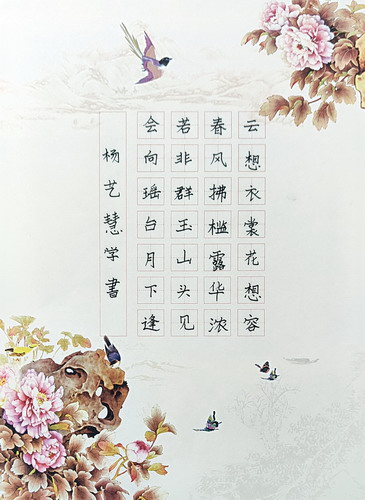 云想衣裳花想容
春风拂槛露华浓
若非群玉山头见
会向瑶台月下逢
杨艺慧学书